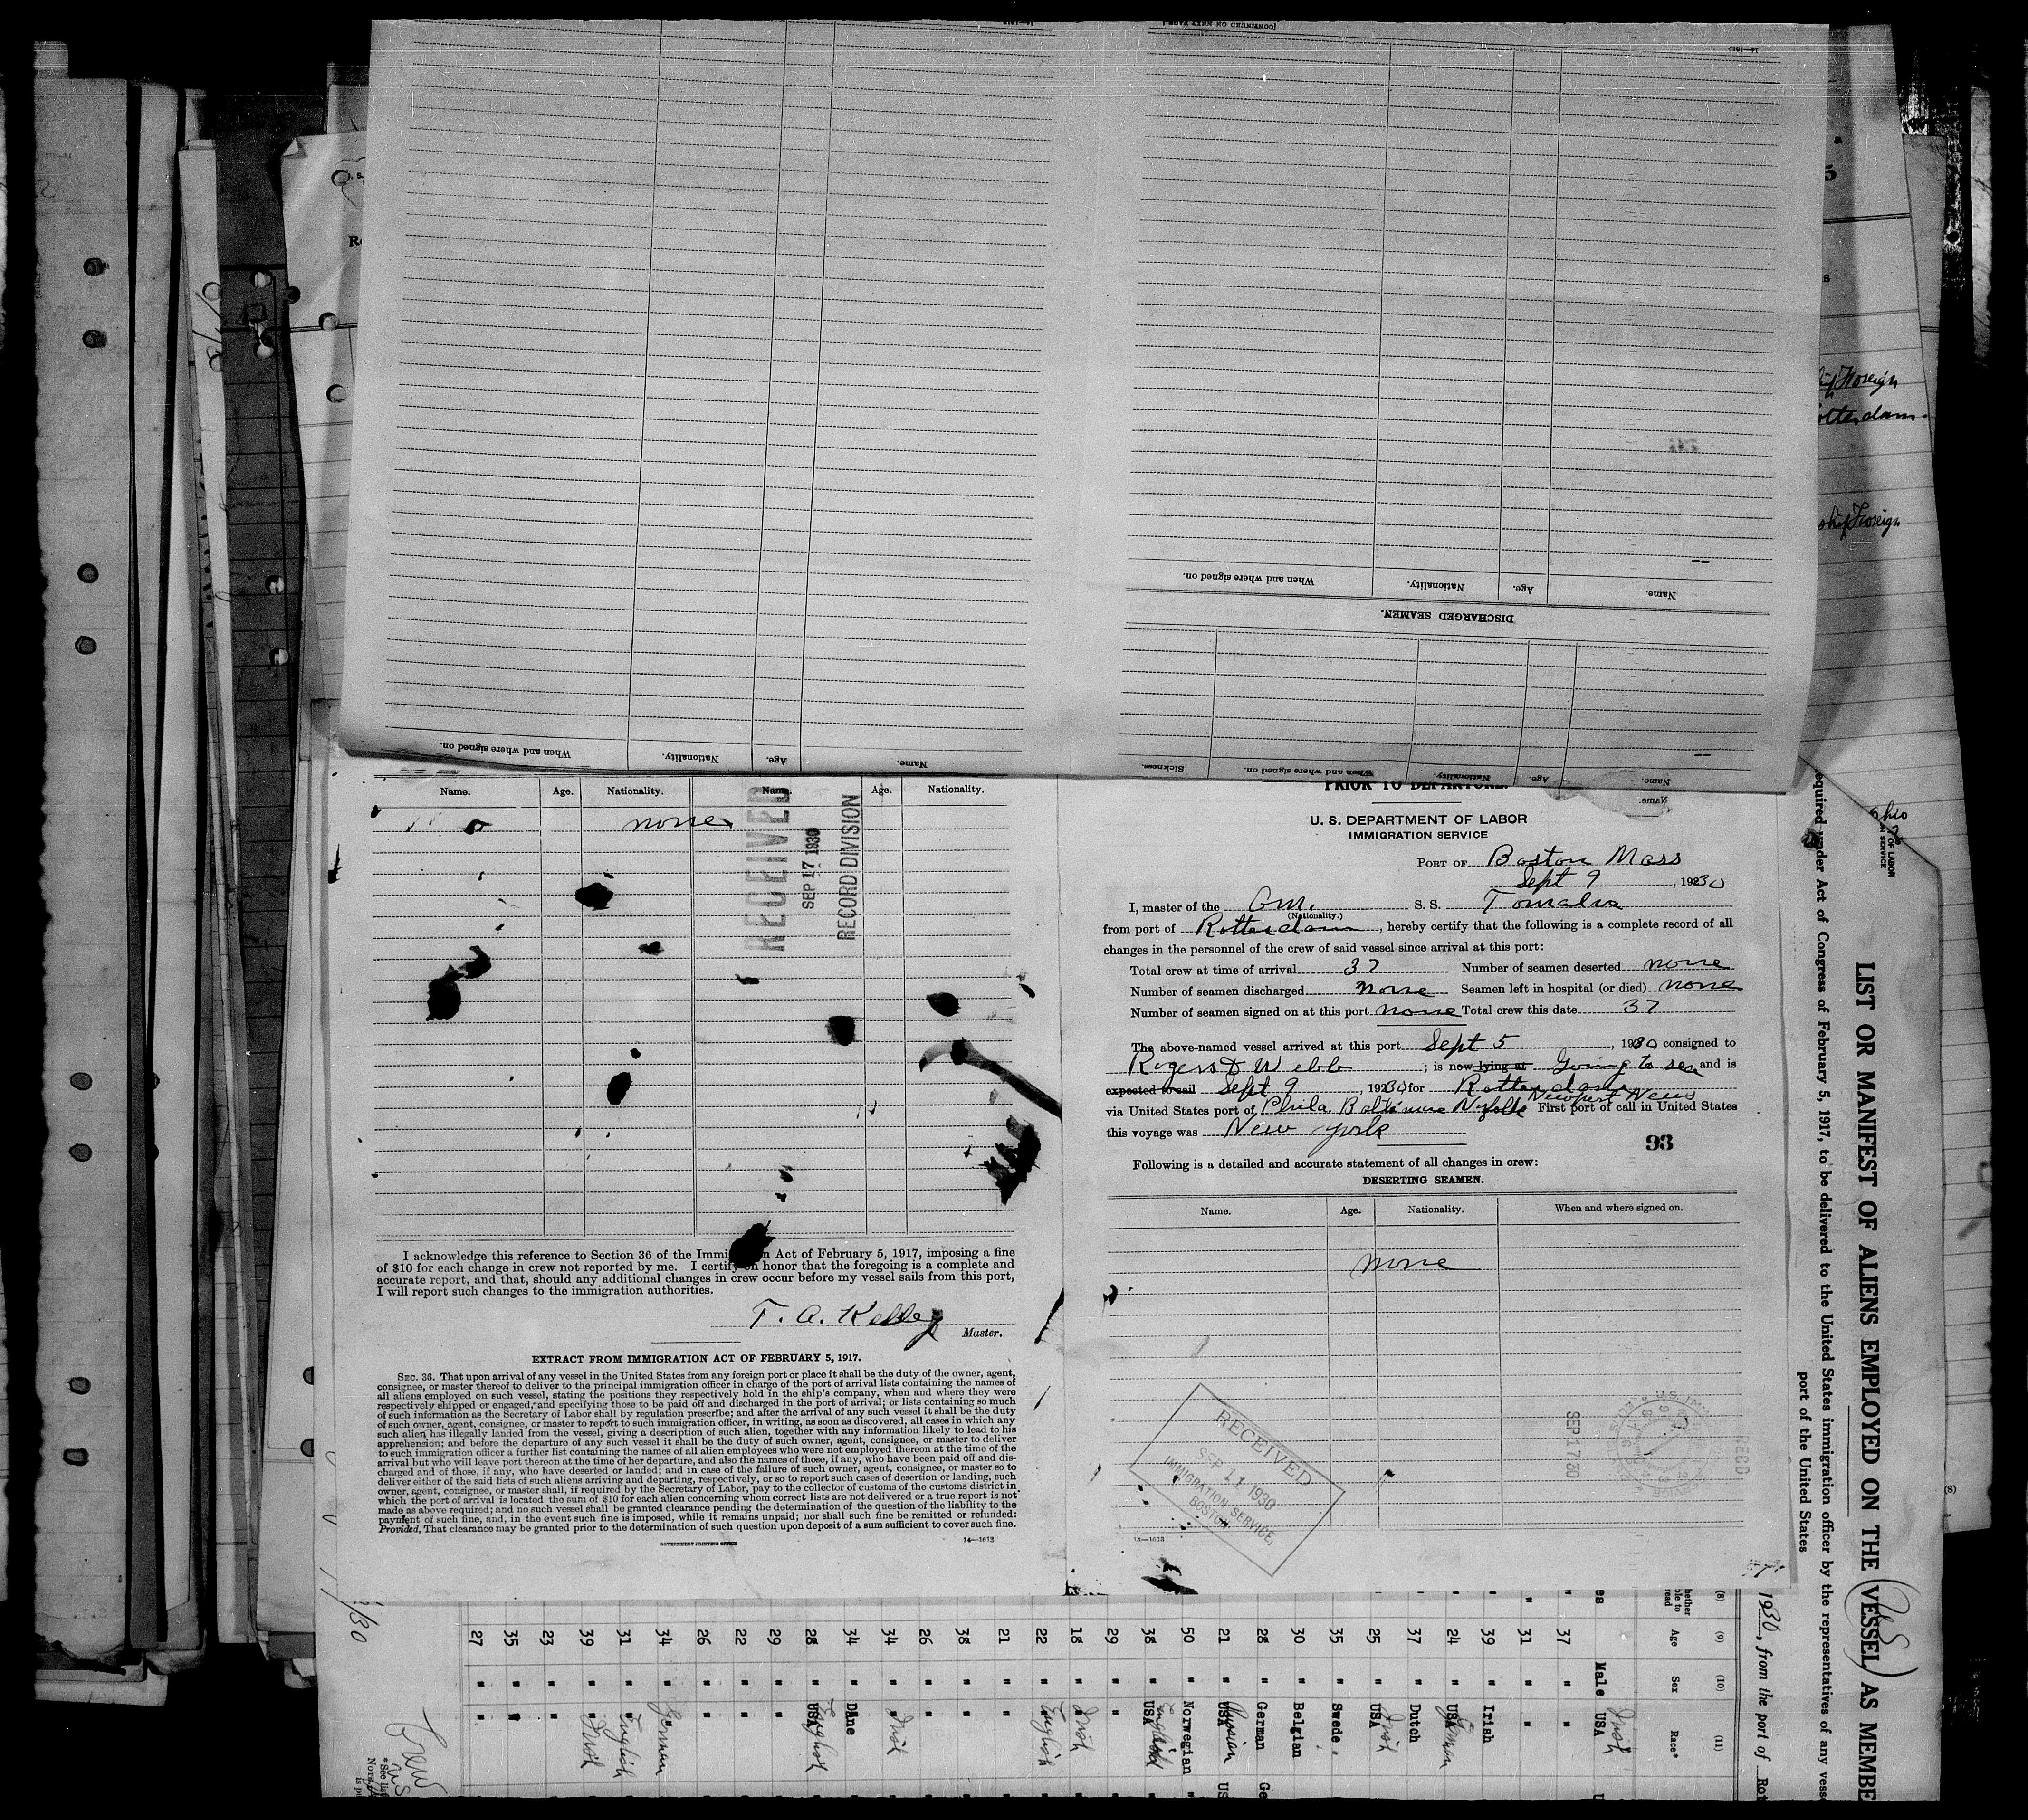 Name. Age. Nationality. When and where signed on.
DISCHARGED SEAMEN.
Name. Age. Nationality. When and where signed on.
Name. Age. Nationality. When and where signed on. Sickness.
Name. Age. Nationality. Name. Age. Nationality.
none
RECEIVED
SEP 17 1930
RECORD DIVISION
I acknowledge this reference to Section 36 of the Immigration Act of February 5, 1917, imposing a fine
of $10 for each change in crew not reported by me. I certify on honor that the foregoing is a complete and
accurate report, and that, should any additional changes in crew occur before my vessel sails from this port,
I will report such changes to the immigration authorities.
T. A. Kelley
Master.
EXTRACT FROM IMMIGRATION ACT OF FEBRUARY 5, 1917.
SEC. 36. That upon arrival of any vessel in the United States from any foreign port or place it shall be the duty of the owner, agent,
consignee, or master thereof to deliver to the principal immigration officer in charge of the port of arrival lists containing the names of
all aliens employed on such vessel, stating the positions they respectively hold in the ship's company, when and where they were
respectively shipped or engaged, and specifying those to be paid off and discharged in the port of arrival; or lists containing so much
of such information as the Secretary of Labor shall by regulation prescribe; and after the arrival of any such vessel it shall be the duty
of such owner, agent, consignee, or master to report to such immigration officer, in writing, as soon as discovered, all cases in which any
such alien has illegally landed from the vessel, giving a description of such alien, together with any information likely to lead to his
apprehension; and before the departure of any such vessel it shall be the duty of such owner, agent, consignee, or master to deliver
to such immigration officer a further list containing the names of all alien employees who were not employed thereon at the time of the
arrival but who will leave port thereon at the time of her departure, and also the names of those, if any, who have been paid off and dis-
charged and of those, if any, who have deserted or landed; and in case of the failure of such owner, agent, consignee, or master so to
deliver either of the said lists of such aliens arriving and departing, respectively, or so to report such cases of desertion or landing, such
owner, agent, consignee, or master shall, if required by the Secretary of Labor, pay to the collector of customs of the customs district in
which the port of arrival is located the sum of $10 for each alien concerning whom correct lists are not delivered or a true report is not
made as above required; and no such vessel shall be granted clearance pending the determination of the question of the liability to the
payment of such fine, and, in the event such fine is imposed, while it remains unpaid; nor shall such fine be remitted or refunded:
Provided, That clearance may be granted prior to the determination of such question upon deposit of a sum sufficient to cover such fine.
GOVERNMENT PRINTING OFFICE 14—1613
PRIOR TO DEPARTURE.
U. S. DEPARTMENT OF LABOR
IMMIGRATION SERVICE
PORT OF Boston Mass
Sept 9, 1930
I, master of the Am. S. S. Tomalva
(Nationality.)
from port of Rotterdam, hereby certify that the following is a complete record of all
changes in the personnel of the crew of said vessel since arrival at this port:
Total crew at time of arrival 37 Number of seamen deserted none
Number of seamen discharged none Seamen left in hospital (or died) none
Number of seamen signed on at this port none Total crew this date 37
The above-named vessel arrived at this port Sept 5, 1930 consigned to
Rogers & Webb; is now lying at Going to sea and is
expected to sail Sept 9, 1930 for Rotterdam
Newport News
via United States port of Phila Baltimore Norfolk First port of call in United States
this voyage was New York
93
Following is a detailed and accurate statement of all changes in crew:
DESERTING SEAMEN.
Name. Age. Nationality. When and where signed on.
none
RECEIVED
SEP 11 1930
IMMIGRATION SERVICE,
BOSTON
SEP 17 30
RECD
14—1613
LIST OR MANIFEST OF ALIENS EMPLOYED ON THE VESSEL AS MEMBE
equired under Act of Congress of February 5, 1917, to be delivered to the United States immigration officer by the representatives of any vesse
port of the United States
1930, from the port of Rot
(8) (9) (10) (11)
Age Sex Race*
Male USA Irish
37 "
31 "
39 " Irish
24 " USA German
37 " Dutch
25 " USA Irish
35 " Swede
30 " Belgian
28 " German Ge
21 " USA Russian US
50 " Norwegian
38 " USA English
29 "
18 " Irish
22 " English
21 "
38 "
26 "
34 " Irish
34 " Dane
28 " USA English
29 "
22 "
26 "
34 " German
31 " English
39 " Irish
23 "
35 " "
27 " "